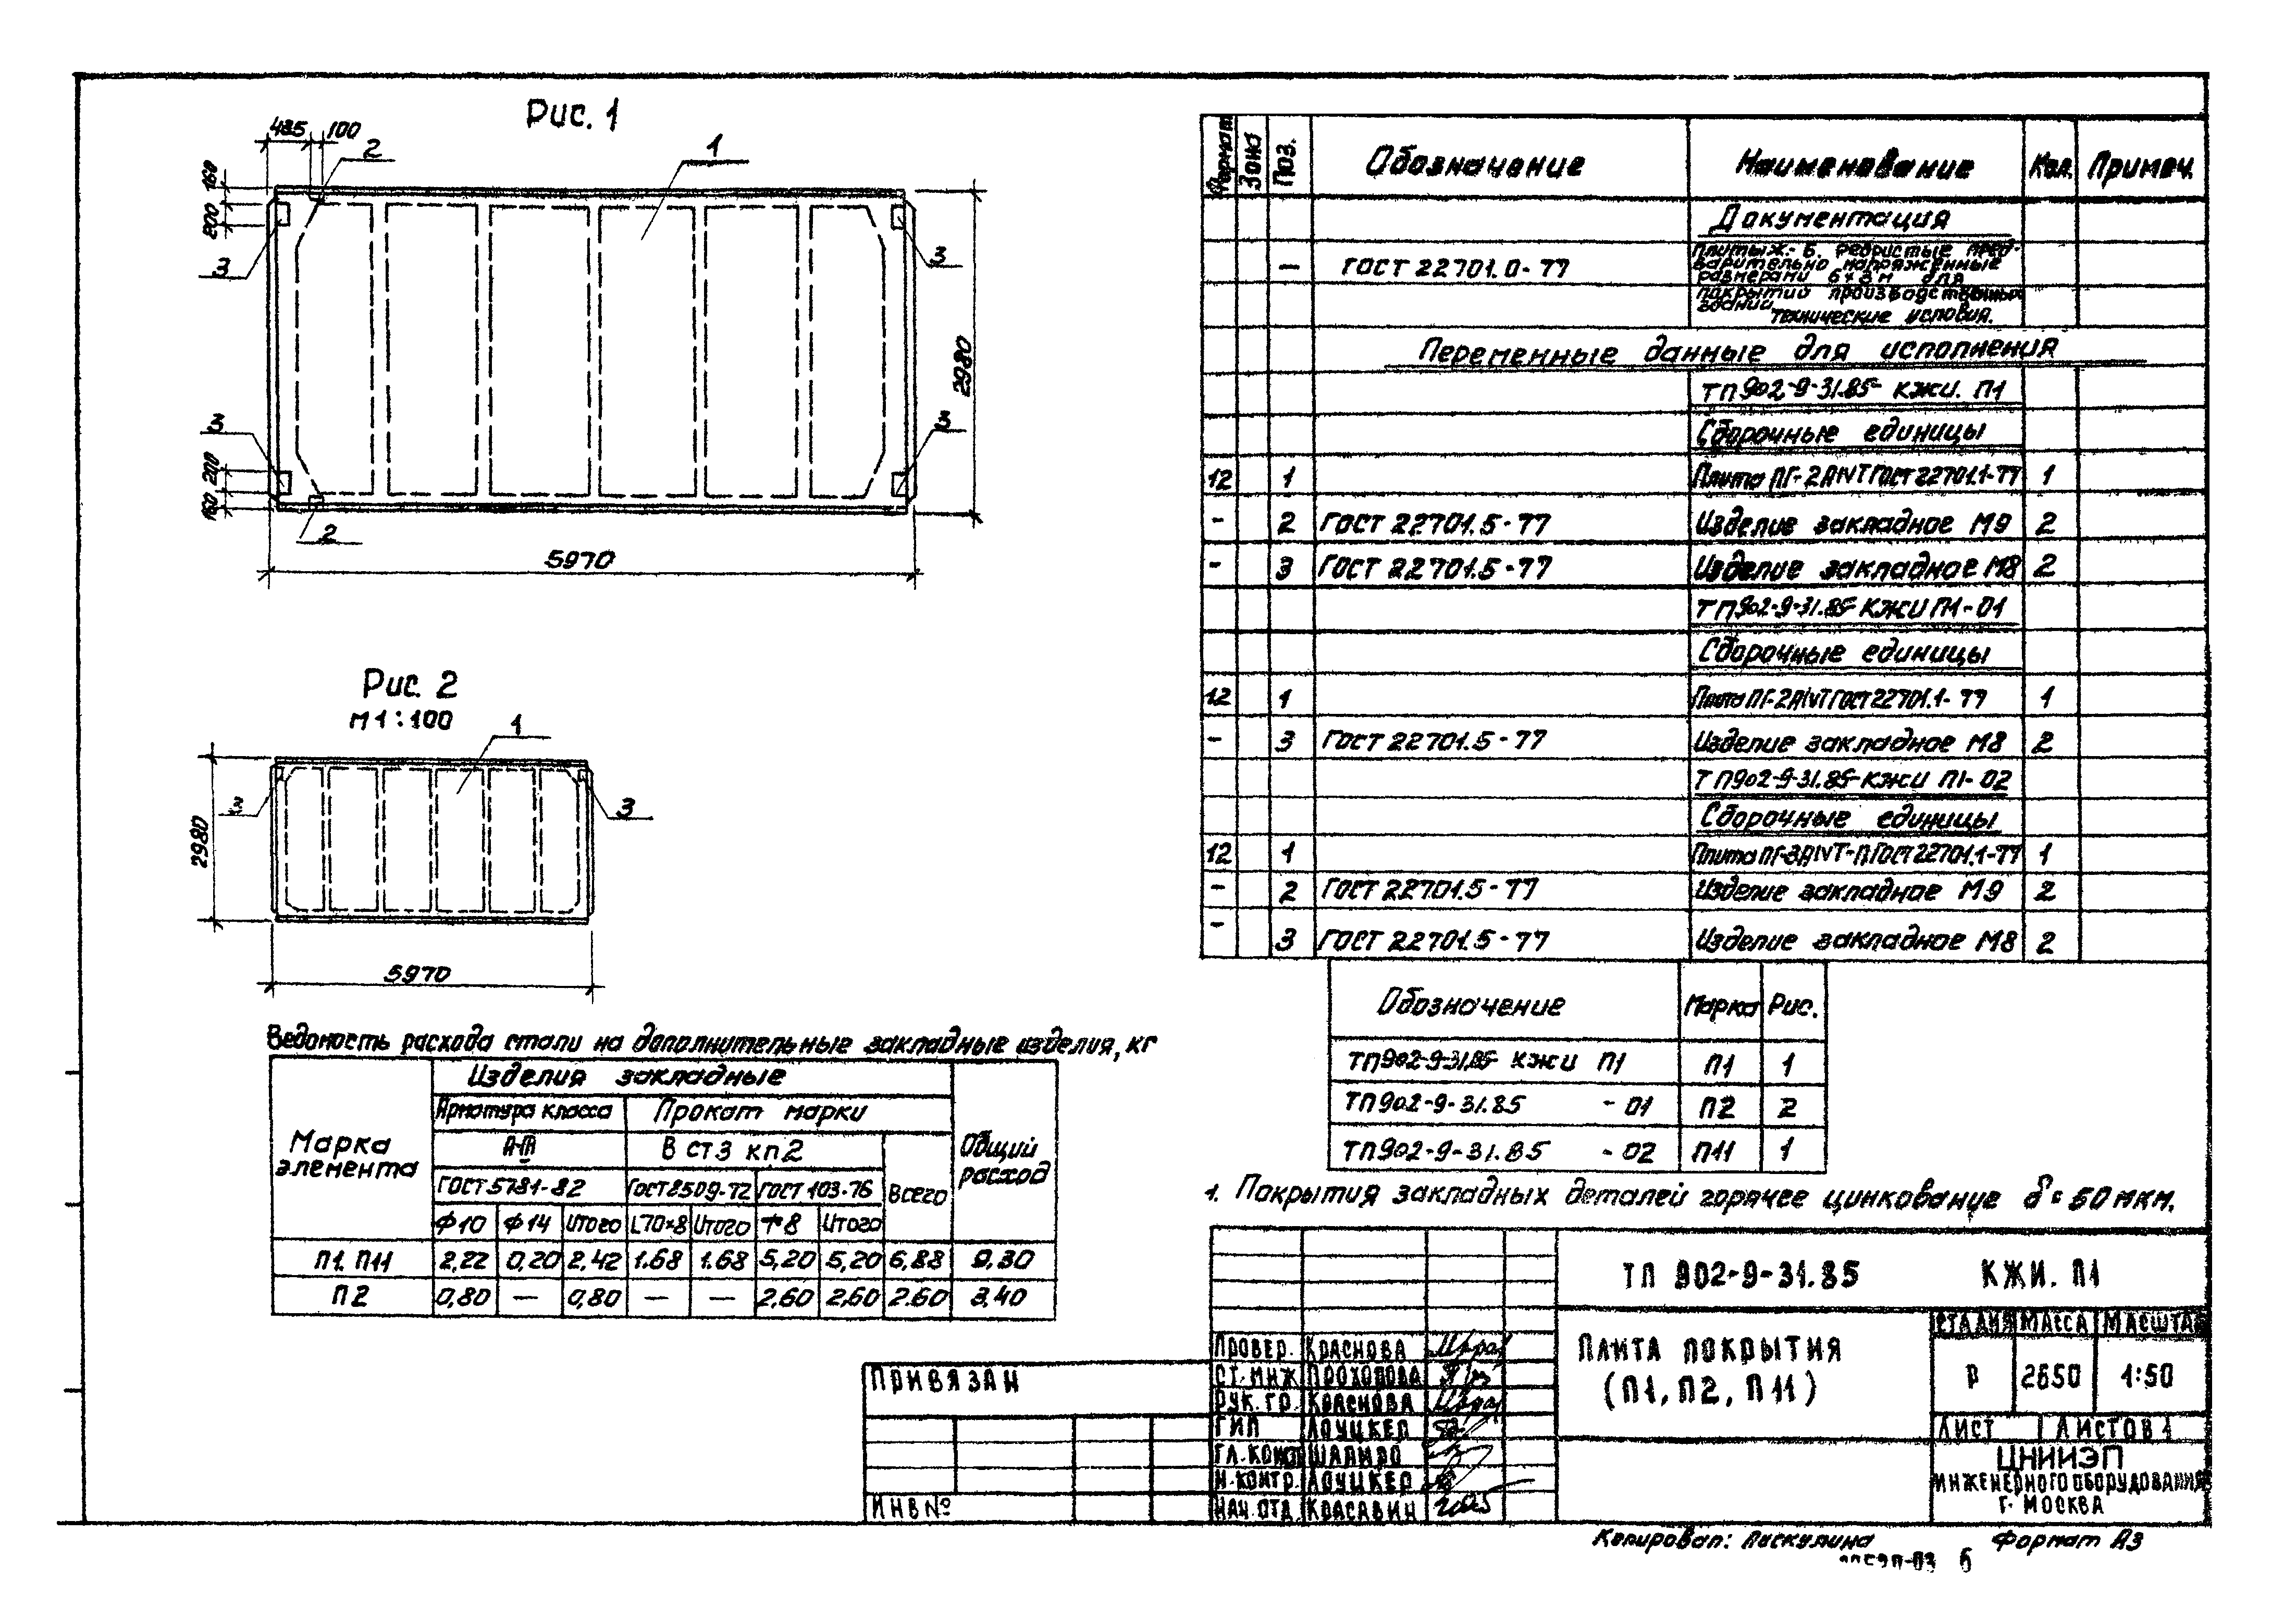 Рис. 1
485 100
2
1
160
200
3
3
2980
3
3
200
160
2
5970
Рис. 2
М 1:100
1
3
3
2980
5970
Ведомость расхода стали на дополнительные закладные изделия, кг
Марка элемента
Изделия закладные
Общий расход
Арматура класса
Прокат марки
А-III
В ст3 кп2
Всего
ГОСТ 5781-82
ГОСТ 8509-72
ГОСТ 103-76
Ф10 Ф14 Итого L70×8 Итого Итого
П1. П11 2,22 0,20 2,42 1.68 1.68 5,20 5,20 6,88 9,30
П2 0,80 — 0,80 — — 2,60 2,60 2.60 3,40
Формат Зона Поз. Обозначение Наименование Кол. Примеч.
Документация
— ГОСТ 22701.0-77 Плиты ж.-б. ребристые пред-
варительно напряженные
размерами 6×3 м для
покрытий производственных
зданий
технические условия.
Переменные данные для исполнения
ТП 902-9-31.85 КЖИ. П1
Сборочные единицы
12 1 Плита ПГ-2АIVТ ГОСТ 22701.1-77 1
- 2 ГОСТ 22701.5-77 Изделие закладное М9 2
- 3 ГОСТ 22701.5-77 Изделие закладное М8 2
ТП 902-9-31.85 КЖИ П1-01
Сборочные единицы
12 1 Плита ПГ-2АIVТ ГОСТ 22701.1-77 1
- 3 ГОСТ 22701.5-77 Изделие закладное М8 2
ТП 902-9-31.85 КЖИ П1-02
Сборочные единицы
12 1 Плита ПГ-3АIVТ-П ГОСТ 22701.1-77 1
- 2 ГОСТ 22701.5-77 Изделие закладное М9 2
- 3 ГОСТ 22701.5-77 Изделие закладное М8 2
Обозначение Марка Рис.
ТП 902-9-31.85 КЖИ П1 П1 1
ТП 902-9-31.85 -01 П2 2
ТП 902-9-31.85 -02 П11 1
1. Покрытия закладных деталей горячее цинкование δ = 60 мкм.
ТП 902-9-31.85 КЖИ. П1
ПЛИТА ПОКРЫТИЯ
(П1, П2, П11)
СТАДИЯ МАССА МАСШТАБ
Р 2650 1:50
ЛИСТ ЛИСТОВ 1
ЦНИИЭП
ИНЖЕНЕРНОГО ОБОРУДОВАНИЯ
Г. МОСКВА
ПРОВЕР. КРАСНОВА
СТ. ИНЖ ПРОХОРОВА
РУК. ГР. КРАСНОВА
ГИП ЛОУЦКЕР
ГЛ. КОНСТ ШАПИРО
Н. КОНТР. ЛОУЦКЕР
НАЧ. ОТД. КРАСАВИН
ПРИВЯЗАН
ИНВ №
Копировал: Паскулина Формат А3
6